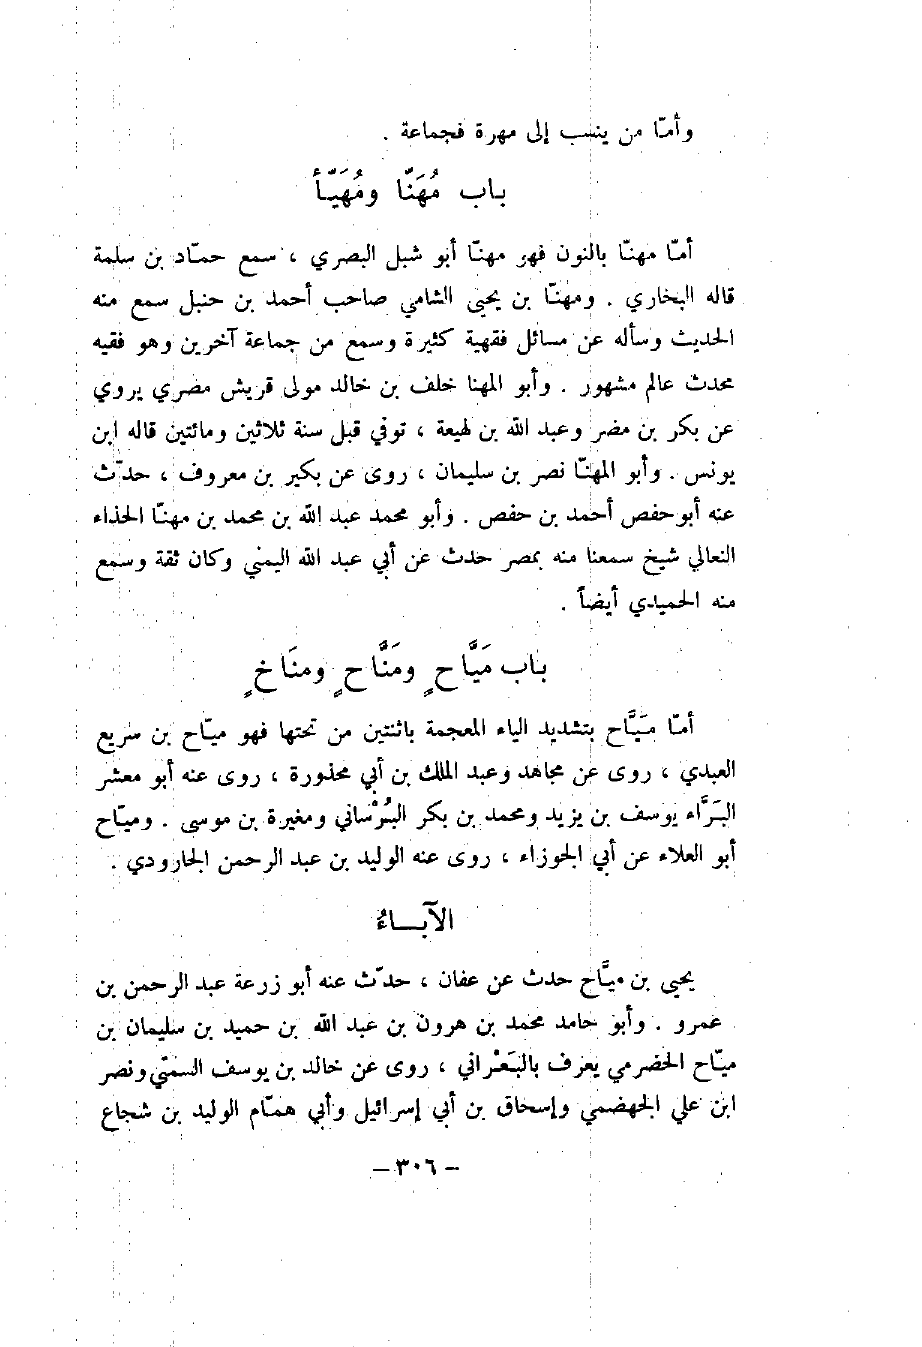 وأمّا من ينسب إلى مهرة فجماعة .
باب مُهَنّا ومُهَيّأ
أمّا مهنّا بالنون فهو مهنّا أبو شبل البصري ، سمع حمّاد بن سلمة
قاله البخاري . ومهنّا بن يحيى الشامي صاحب أحمد بن حنبل سمع منه
الحديث وسأله عن مسائل فقهية كثيرة وسمع من جماعة آخرين وهو فقيه
محدث عالم مشهور . وأبو المهنا خلف بن خالد مولى قريش مصري يروي
عن بكر بن مضر وعبد الله بن لهيعة ، توفي قبل سنة ثلاثين ومائتين قاله ابن
يونس . وأبو المهنّا نصر بن سليمان ، روى عن بكير بن معروف ، حدّث
عنه أبو حفص أحمد بن حفص . وأبو محمد عبد الله بن محمد بن مهنّا الحذاء
النعالي شيخ سمعنا منه بمصر حدث عن أبي عبد الله اليمني وكان ثقة وسمع
منه الحميدي أيضاً .
باب مَيَّاحٍ ومَنَّاحٍ ومنَاخٍ
أمّا مَيَّاح بتشديد الياء المعجمة باثنتين من تحتها فهو ميّاح بن سريع
العبدي ، روى عن مجاهد وعبد الملك بن أبي محذورة ، روى عنه أبو معشر
البَرَّاء يوسف بن يزيد ومحمد بن بكر البُرْساني ومغيرة بن موسى . وميّاح
أبو العلاء عن أبي الجوزاء ، روى عنه الوليد بن عبد الرحمن الجارودي .
الآبــاءُ
يحيى بن ميَّاح حدث عن عفان ، حدّث عنه أبو زرعة عبد الرحمن بن
عمرو . وأبو حامد محمد بن هرون بن عبد الله بن حميد بن سليمان بن
ميّاح الحضرمي يعرف بالبَعْراني ، روى عن خالد بن يوسف السمتي ونصر
ابن علي الجهضمي وإسحاق بن أبي إسرائيل وأبي همّام الوليد بن شجاع
– ٣٠٦ –